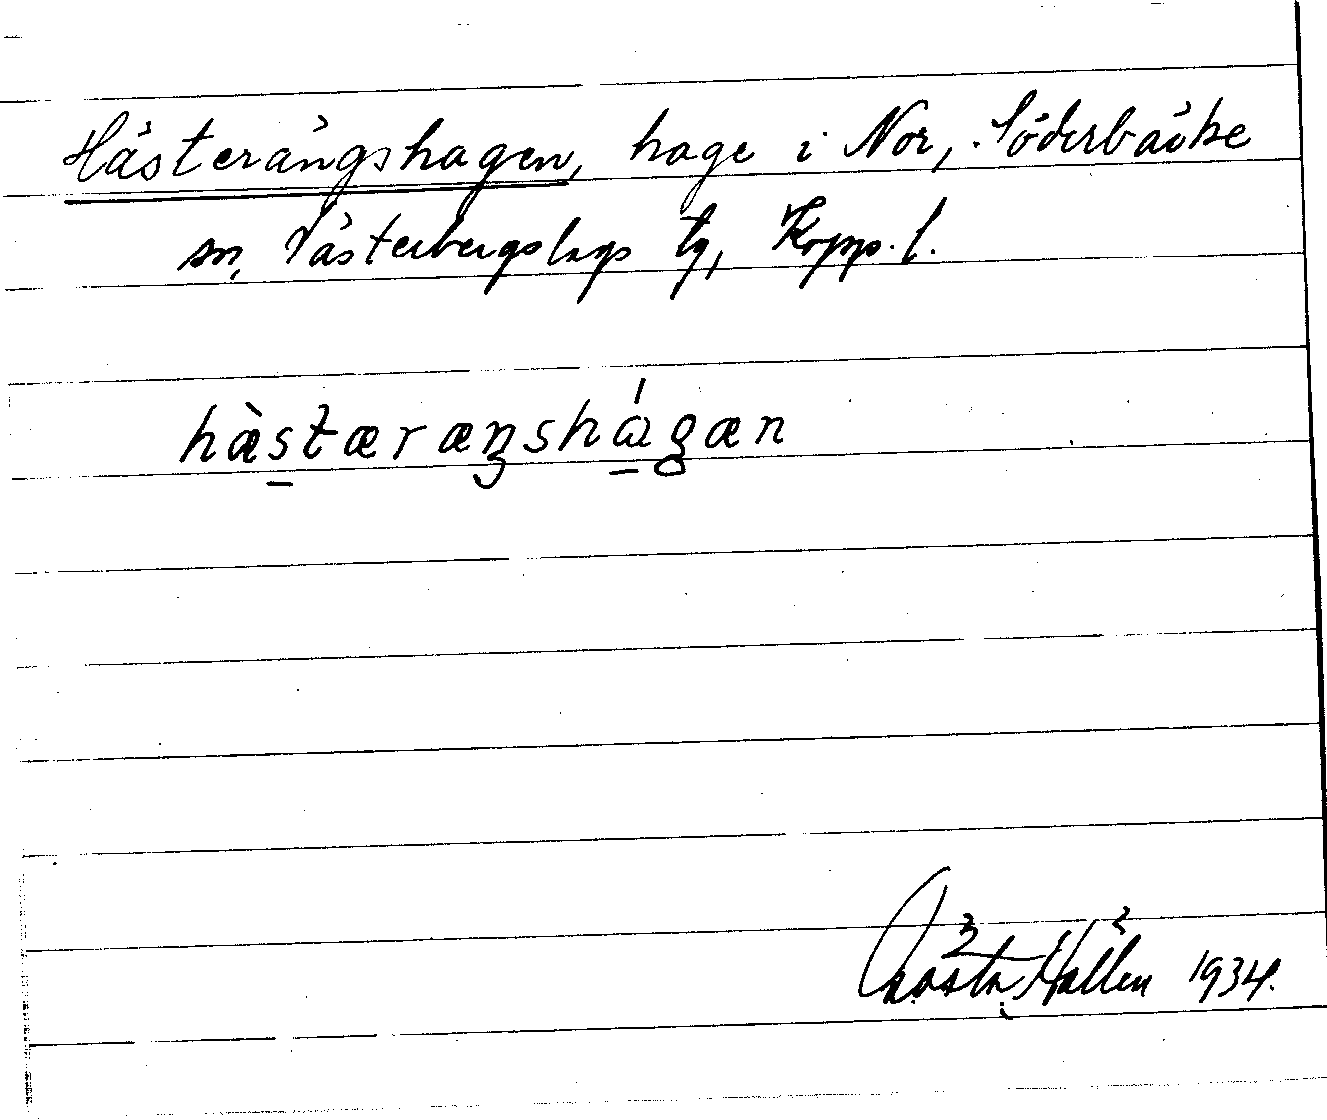 Hästerängshagen, hage i Nor, Söderbärke
sn, Västerbergslags tg, Kopp. l.
hæ̀stæræŋshágæn
Gösta Hallén 1934.